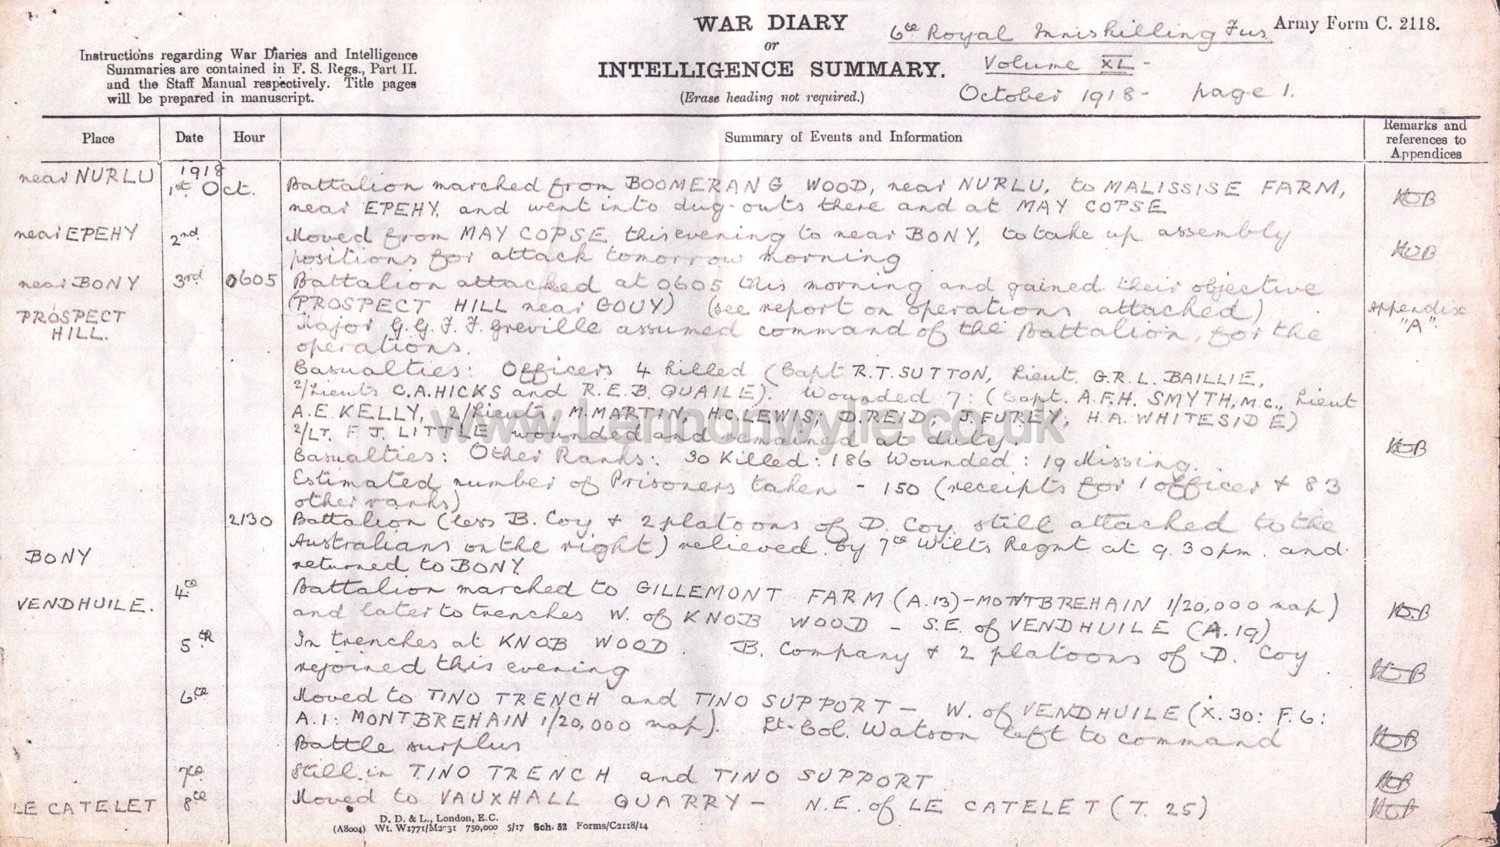 WAR DIARY
or
INTELLIGENCE SUMMARY.
(Erase heading not required.)
6th Royal Inniskilling Fus.
Volume XL -
October 1918 - page 1.
Army Form C. 2118.
Instructions regarding War Diaries and Intelligence
Summaries are contained in F. S. Regs., Part II.
and the Staff Manual respectively. Title pages
will be prepared in manuscript.
Place Date Hour Summary of Events and Information Remarks and references to Appendices
near NURLU 1918 1st Oct. Battalion marched from BOOMERANG WOOD, near NURLU, to MALISSISE FARM,
near EPEHY, and went into dug-outs there and at MAY COPSE
near EPEHY 2nd Moved from MAY COPSE this evening to near BONY, to take up assembly
positions for attack tomorrow morning
near BONY 3rd 0605 Battalion attacked at 0605 this morning and gained their objective
PROSPECT HILL. (PROSPECT HILL near GOUY) (see report on operations attached) Appendix "A"
Major G.G.F.F. Greville assumed command of the Battalion, for the
operations.
Casualties: Officers 4 killed (Capt R.T. SUTTON, Lieut. G.R.L. BAILLIE,
2/Lieuts C.A. HICKS and R.E.B. QUAILE). Wounded 7: (Capt. A.F.H. SMYTH, M.C., Lieut
A.E. KELLY, 2/Lieuts M. MARTIN, H.C. LEWIS, D. REID, D. FUREY, H.A. WHITESIDE)
2/Lt. F J. LITTLE wounded and remained at duty.
Casualties: Other Ranks: 30 Killed: 186 Wounded: 19 Missing.
Estimated number of Prisoners taken - 150 (receipts for 1 officer + 83
other ranks)
2130 Battalion (less B. Coy + 2 platoons of D. Coy still attached to the
Australians on the right) relieved by 7th Wilts Regmt at 9.30 pm. and
BONY returned to BONY
VENDHUILE. 4th Battalion marched to GILLEMONT FARM (A.13) - MONTBREHAIN 1/20,000 map)
and later to trenches W. of KNOB WOOD - S.E. of VENDHUILE (A.19)
5th In trenches at KNOB WOOD. B. Company + 2 platoons of D. Coy
rejoined this evening
6th Moved to TINO TRENCH and TINO SUPPORT - W. of VENDHUILE (X.30: F.6:
A.1: MONTBREHAIN 1/20,000 map). Lt-Col. Watson left to command
Battle surplus
7th Still in TINO TRENCH and TINO SUPPORT
LE CATELET 8th Moved to VAUXHALL QUARRY - N.E. of LE CATELET (T. 25)
D. D. & L., London, E.C.
(A8004) Wt. W1771/M2-31 750,000 5/17 Sch. 52 Forms/C2118/14
www.Lennonwylie.co.uk